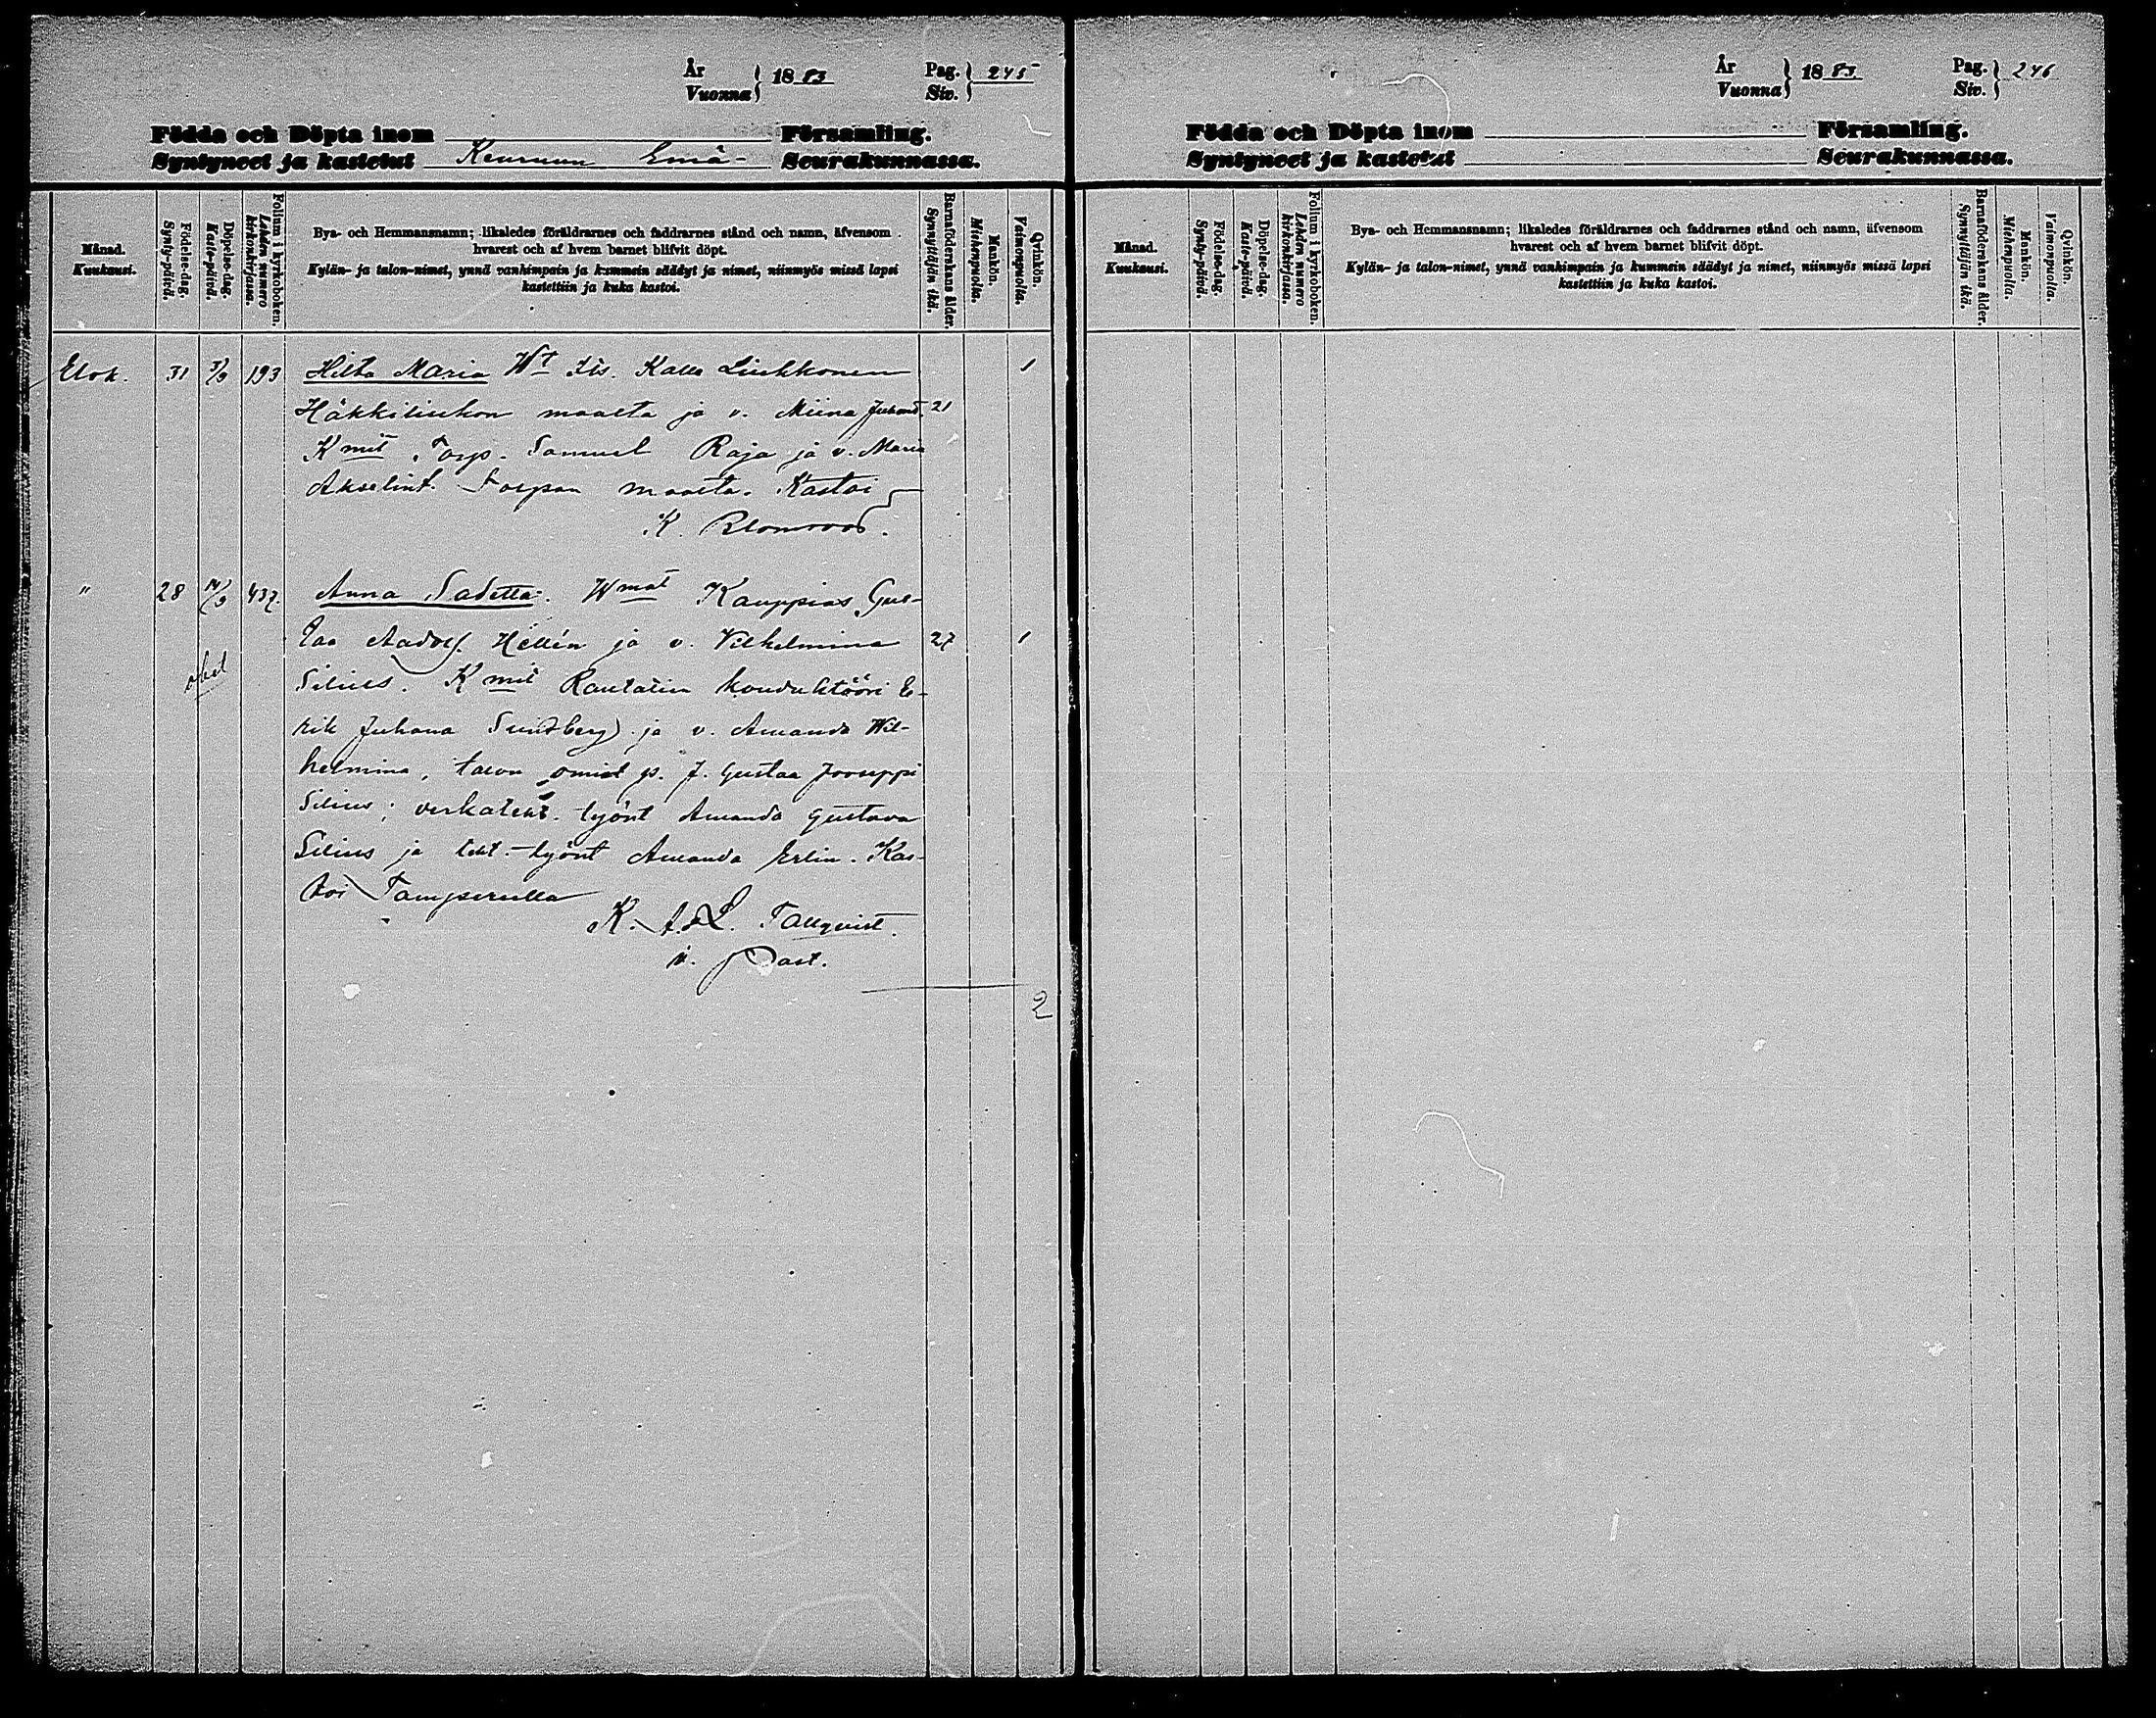 År
Vuonna } 18 83
Pag.
Siv. } 245
Födda och Döpta inom Församling.
Syntyneet ja kastetut Keuruun Emä- Seurakunnassa.
Månad.
Kuukausi.
Födelse-dag.
Synty-päivä.
Döpelse-dag.
Kaste-päivä.
Folium i kyrkoboken.
Lehden numero kirkonkirjassa.
Bya- och Hemmansnamn; likaledes föräldrarnes och faddrarnes stånd och namn, äfvensom
hvarest och af hvem barnet blifvit döpt.
Kylän- ja talon-nimet, ynnä vanhimpain ja kummein säädyt ja nimet, niinmyös missä lapsi
kastettiin ja kuka kastoi.
Barnaföderskans ålder.
Synnyttäjän ikä.
Mankön.
Miehenpuolia.
Qvinkön.
Vaimonpuolia.
Elok. 31 193 Hilta Maria Wt Its. Kalle Liukkonen 1
Häkkiliukon maalta ja v. Miina Juhant. 21
Kmit Torp. Samuel Raja ja v. Maria
Akselint. Torpan maalta. Kastoi
K. Blomroos.
" 28 437. Anna Sadetta. Wmat Kauppias Gus-
taa Aadolf Hellén ja v. Vilhelmina 27 1
obiit
Silius. Kmit Rautatien konduktööri E-
rik Juhana Sundberg ja v. Amanda Wil-
helmina, talon omist J. Gustaa Jooseppi
Silius; verkateht. työnt Amanda Gustava
Silius ja teht.-työnt Amanda Erlin. Kas-
toi Tampereella
K. A. L. Tallqvist.
v. Past.
2
År
Vuonna } 18 83.
Pag.
Siv. } 246
Födda och Döpta inom Församling.
Syntyneet ja kastetut Seurakunnassa.
Månad.
Kuukausi.
Födelse-dag.
Synty-päivä.
Döpelse-dag.
Kaste-päivä.
Folium i kyrkoboken.
Lehden numero kirkonkirjassa.
Bya- och Hemmansnamn; likaledes föräldrarnes och faddrarnes stånd och namn, äfvensom
hvarest och af hvem barnet blifvit döpt.
Kylän- ja talon-nimet, ynnä vanhimpain ja kummein säädyt ja nimet, niinmyös missä lapsi
kastettiin ja kuka kastoi.
Barnaföderskans ålder.
Synnyttäjän ikä.
Mankön.
Miehenpuolia.
Qvinkön.
Vaimonpuolia.